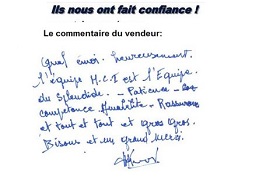 Ils nous ont fait confiance !
Le commentaire du vendeur:
Quel émoi. heureusement
l'équipe M.C.I est l'Equipe
du Splendide. - Patience -
compétence Amabilité - Rassurons
et tout et tout et gros gros.
Bisous et un grand merci.